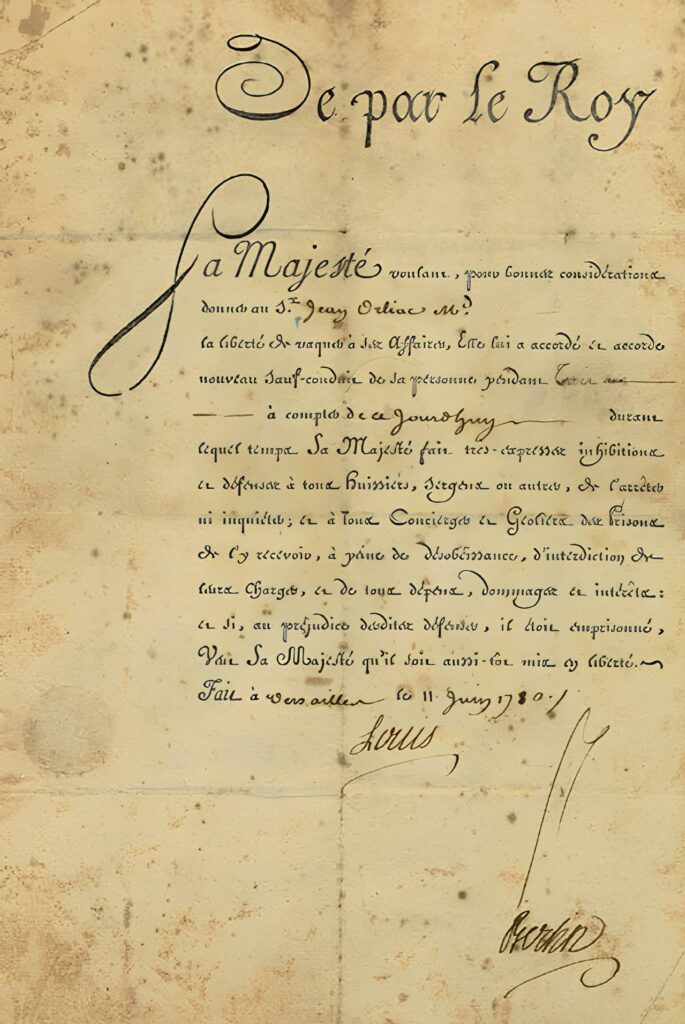 De par le Roy
Sa Majesté voulant, pour bonnes considérations
donner au S.r Jean Orliac M.d
la liberté de vaquer à ses Affaires, Elle lui a accordé et accorde
nouveau Sauf-conduit de sa personne pendant
à compter de ce Jourdhuy durant
lequel temps Sa Majesté fait tres-expresses inhibitions
et défenses à tous Huissiers, Sergens ou autres, de l'arrêter
ni inquiéter; et à Tous Concierges et Geoliers des Prisons
de l'y recevoir, à peine de désobéissance, d'interdiction de
leurs Charges, et de tous dépens, dommages et intérêts:
et si, au préjudice desdites défenses, il étoit emprisonné,
Veut Sa Majesté qu'il soit aussi-tôt mis en liberté.
Fait à Versailles le 11 Juin 1780.
Louis
Bertin